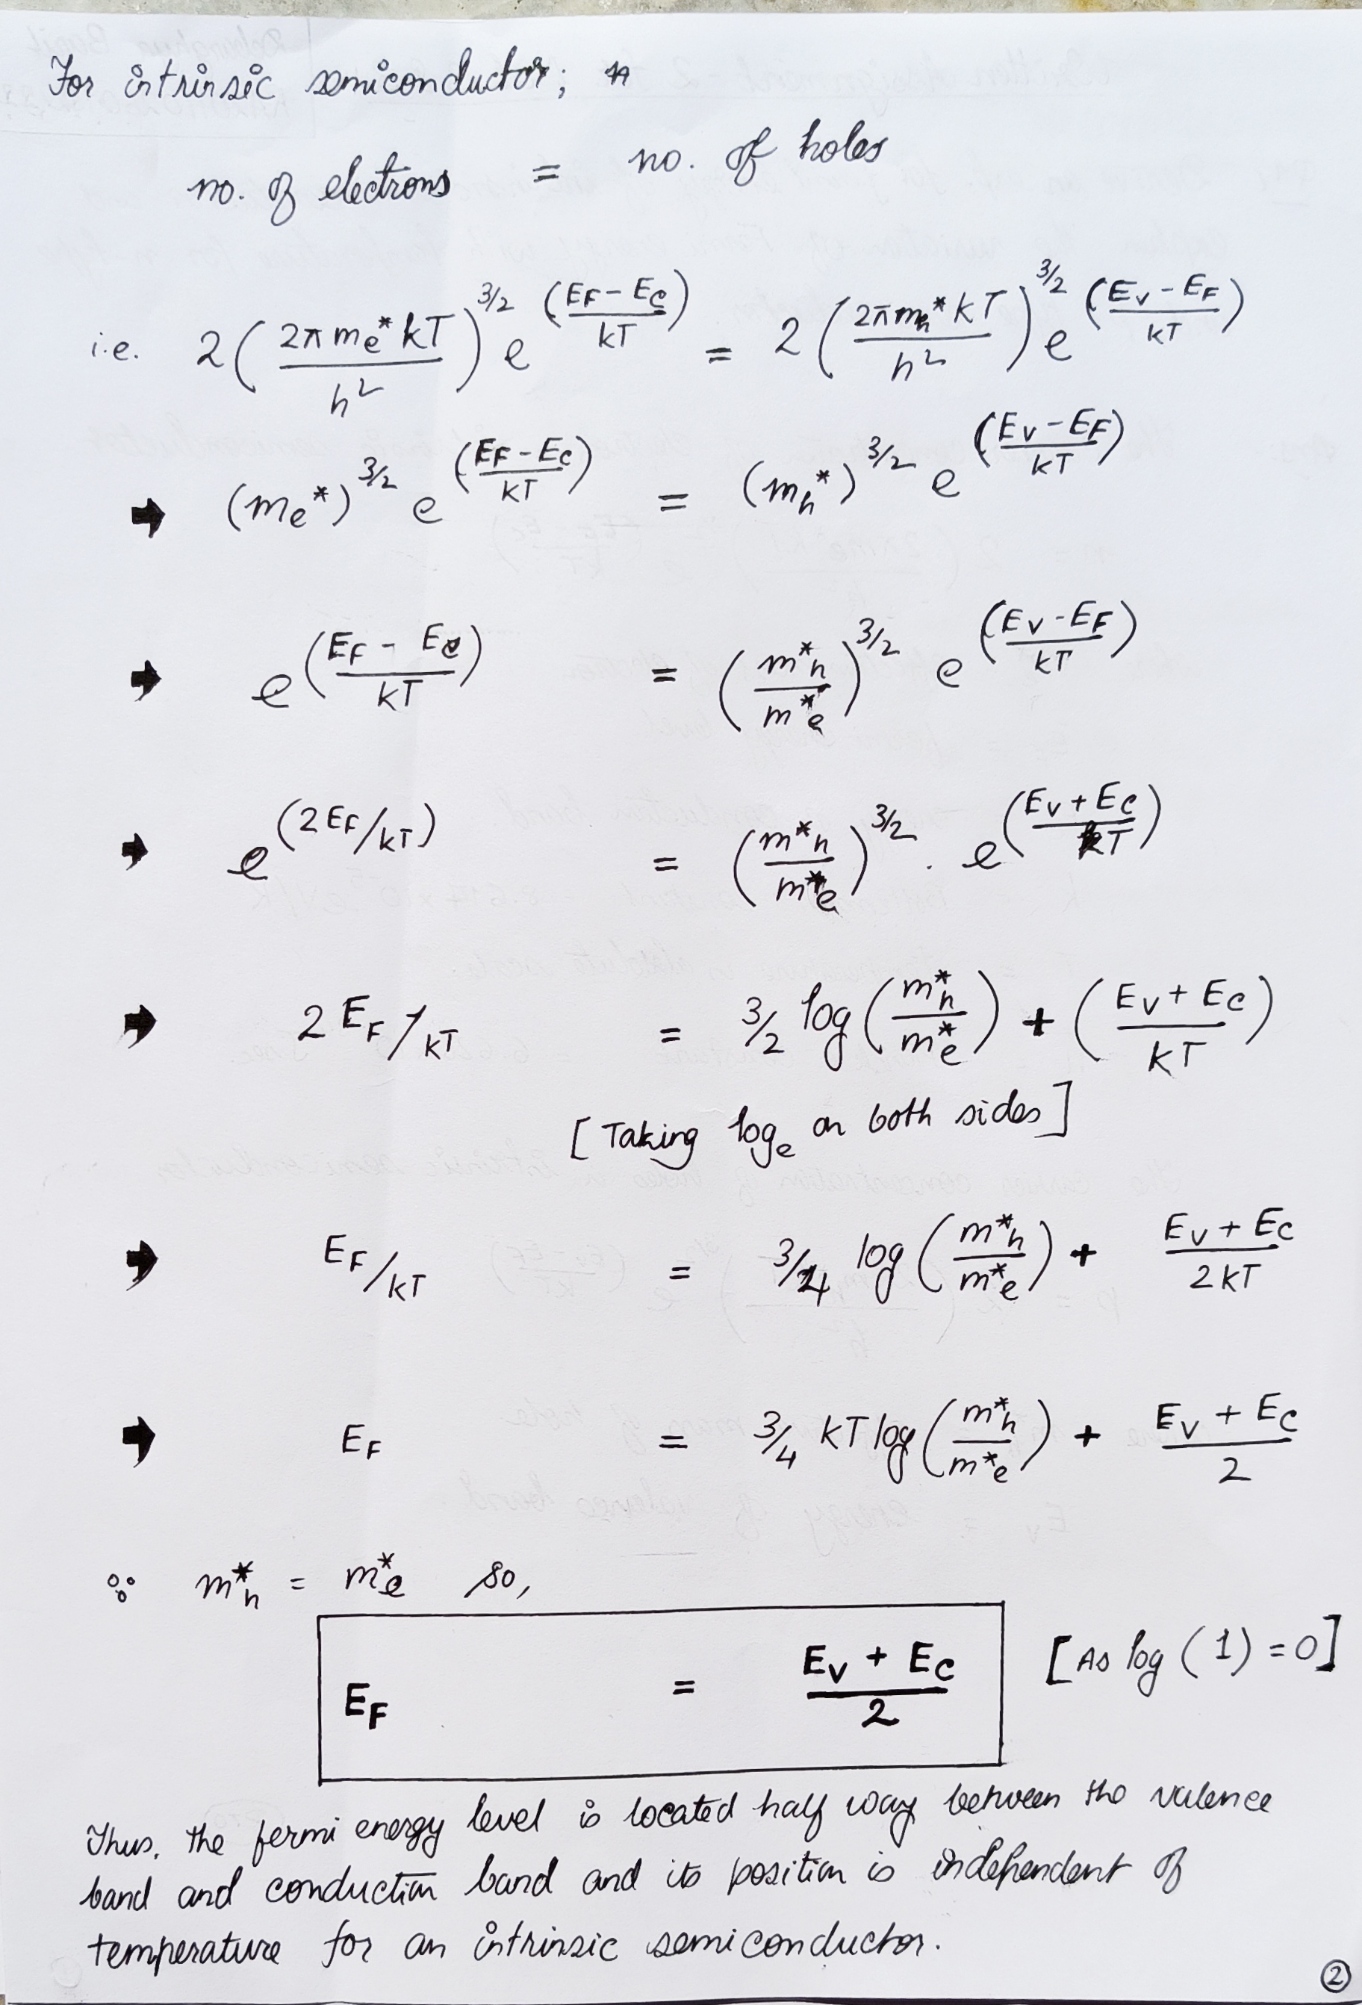 For intrinsic semiconductor; n
no. of electrons = no. of holes
i.e. 2 (2π me* kT / h²)^3/2 e^((EF - Ec)/kT) = 2 (2π mh* kT / h²)^3/2 e^((Ev - EF)/kT)
➡ (me*)^3/2 e^((EF - Ec)/kT) = (mh*)^3/2 e^((Ev - EF)/kT)
➡ e^((EF - Ec)/kT) = (m*h / m*e)^3/2 e^((Ev - EF)/kT)
➡ e^(2EF/kT) = (m*h / m*e)^3/2 . e^((Ev + Ec)/kT)
➡ 2 EF/kT = 3/2 log (m*h / m*e) + ((Ev + Ec)/kT)
[Taking loge on both sides]
➡ EF/kT = 3/4 log (m*h / m*e) + (Ev + Ec)/2kT
➡ EF = 3/4 kT log (m*h / m*e) + (Ev + Ec)/2
∵ m*h = m*e so,
EF = (Ev + Ec)/2 [As log (1) = 0]
Thus, the fermi energy level is located half way between the valence
band and conduction band and its position is independent of
temperature for an intrinsic semiconductor.
②